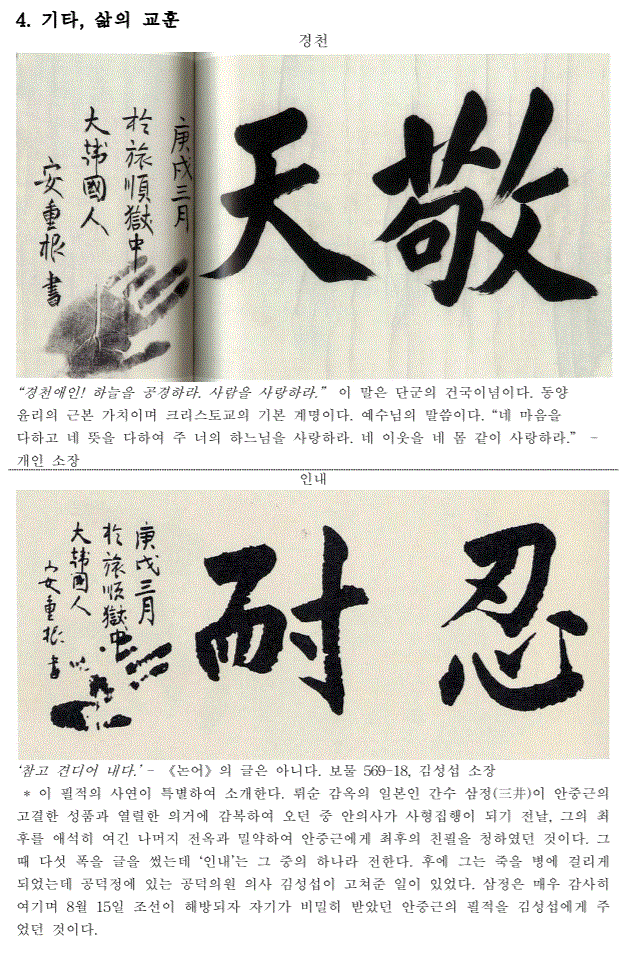 4. 기타, 삶의 교훈
경천
敬天
庚戌三月
於旅順獄中
大韓國人
安重根書
“경천애인! 하늘을 공경하라. 사람을 사랑하라.” 이 말은 단군의 건국이념이다. 동양
윤리의 근본 가치이며 크리스토교의 기본 계명이다. 예수님의 말씀이다. “네 마음을
다하고 네 뜻을 다하여 주 너의 하느님을 사랑하라. 네 이웃을 네 몸 같이 사랑하라.” -
개인 소장
인내
忍耐
庚戌三月
於旅順獄中
大韓國人
安重根書
‘참고 견디어 내다.’- 《논어》의 글은 아니다. 보물 569-18, 김성섭 소장
* 이 필적의 사연이 특별하여 소개한다. 뤼순 감옥의 일본인 간수 삼정(三井)이 안중근의
고결한 성품과 열렬한 의거에 감복하여 오던 중 안의사가 사형집행이 되기 전날, 그의 최
후를 애석히 여긴 나머지 전옥과 밀약하여 안중근에게 최후의 친필을 청하였던 것이다. 그
때 다섯 폭을 글을 썼는데 ‘인내’는 그 중의 하나라 전한다. 후에 그는 죽을 병에 걸리게
되었는데 공덕정에 있는 공덕의원 의사 김성섭이 고쳐준 일이 있었다. 삼정은 매우 감사히
여기며 8월 15일 조선이 해방되자 자기가 비밀히 받았던 안중근의 필적을 김성섭에게 주
었던 것이다.